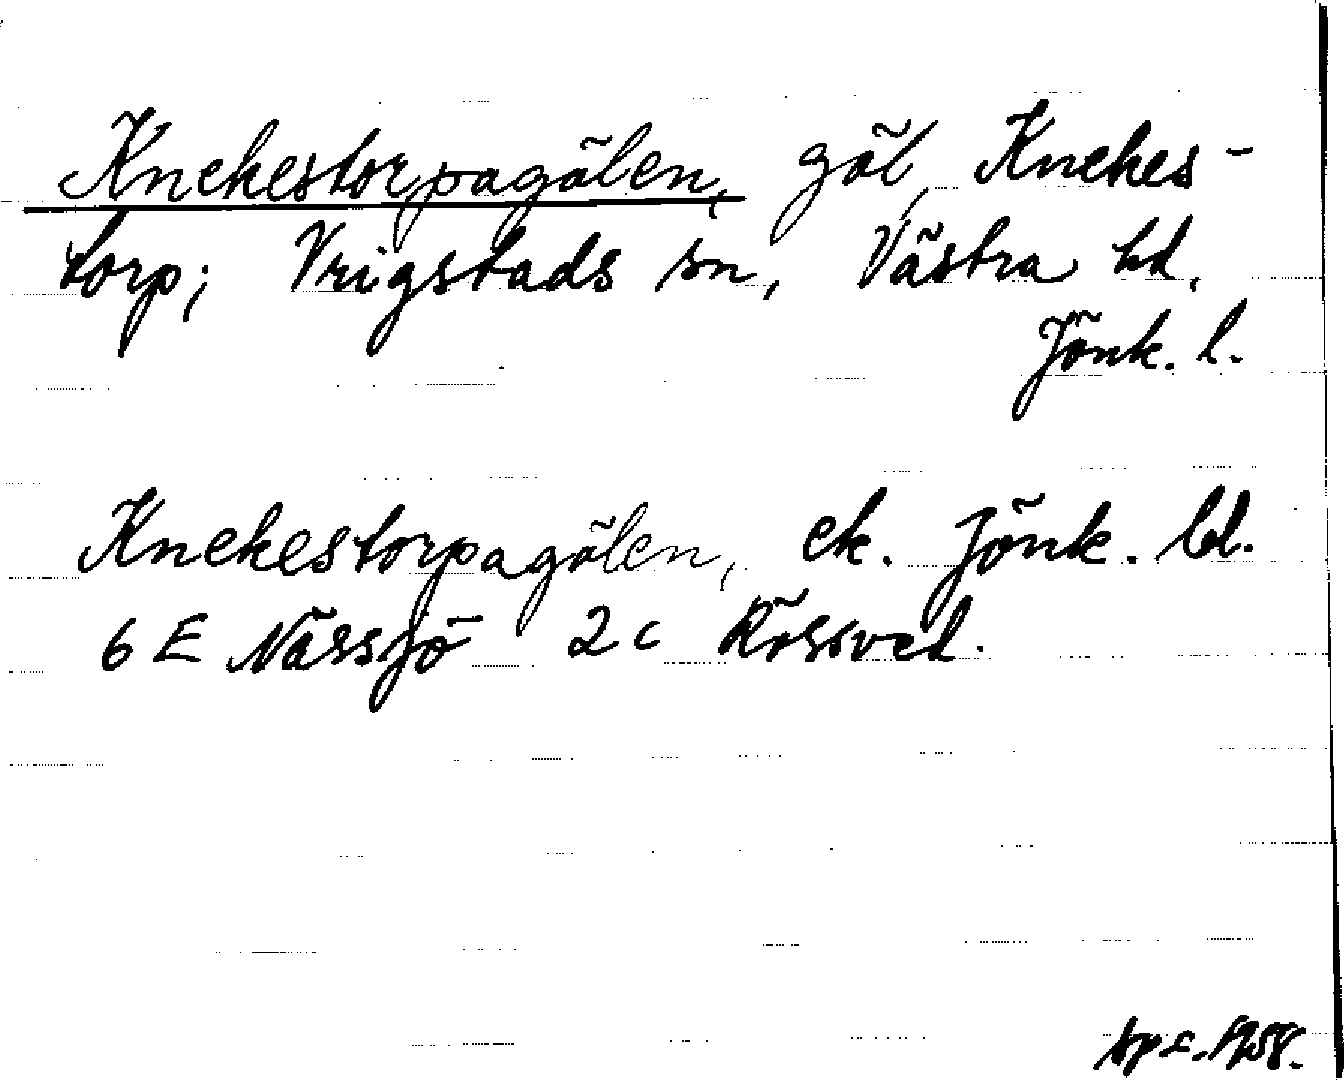 Knekestorpagölen, göl, Knekes-
torp; Vrigstads sn, Västra hd.
Jönk. l.
Knekestorpagölen, ek. Jönk. bl.
6 E Nässjö 2 c
1958.